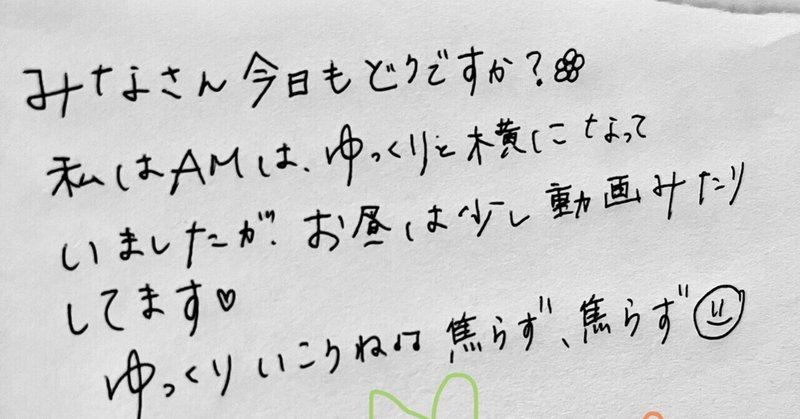 みなさん今日もどうですか？
私はAMは、ゆっくりと横になって
いましたが、お昼は少し動画みたり
してます♡
ゆっくりいこうね♫ 焦らず、焦らず